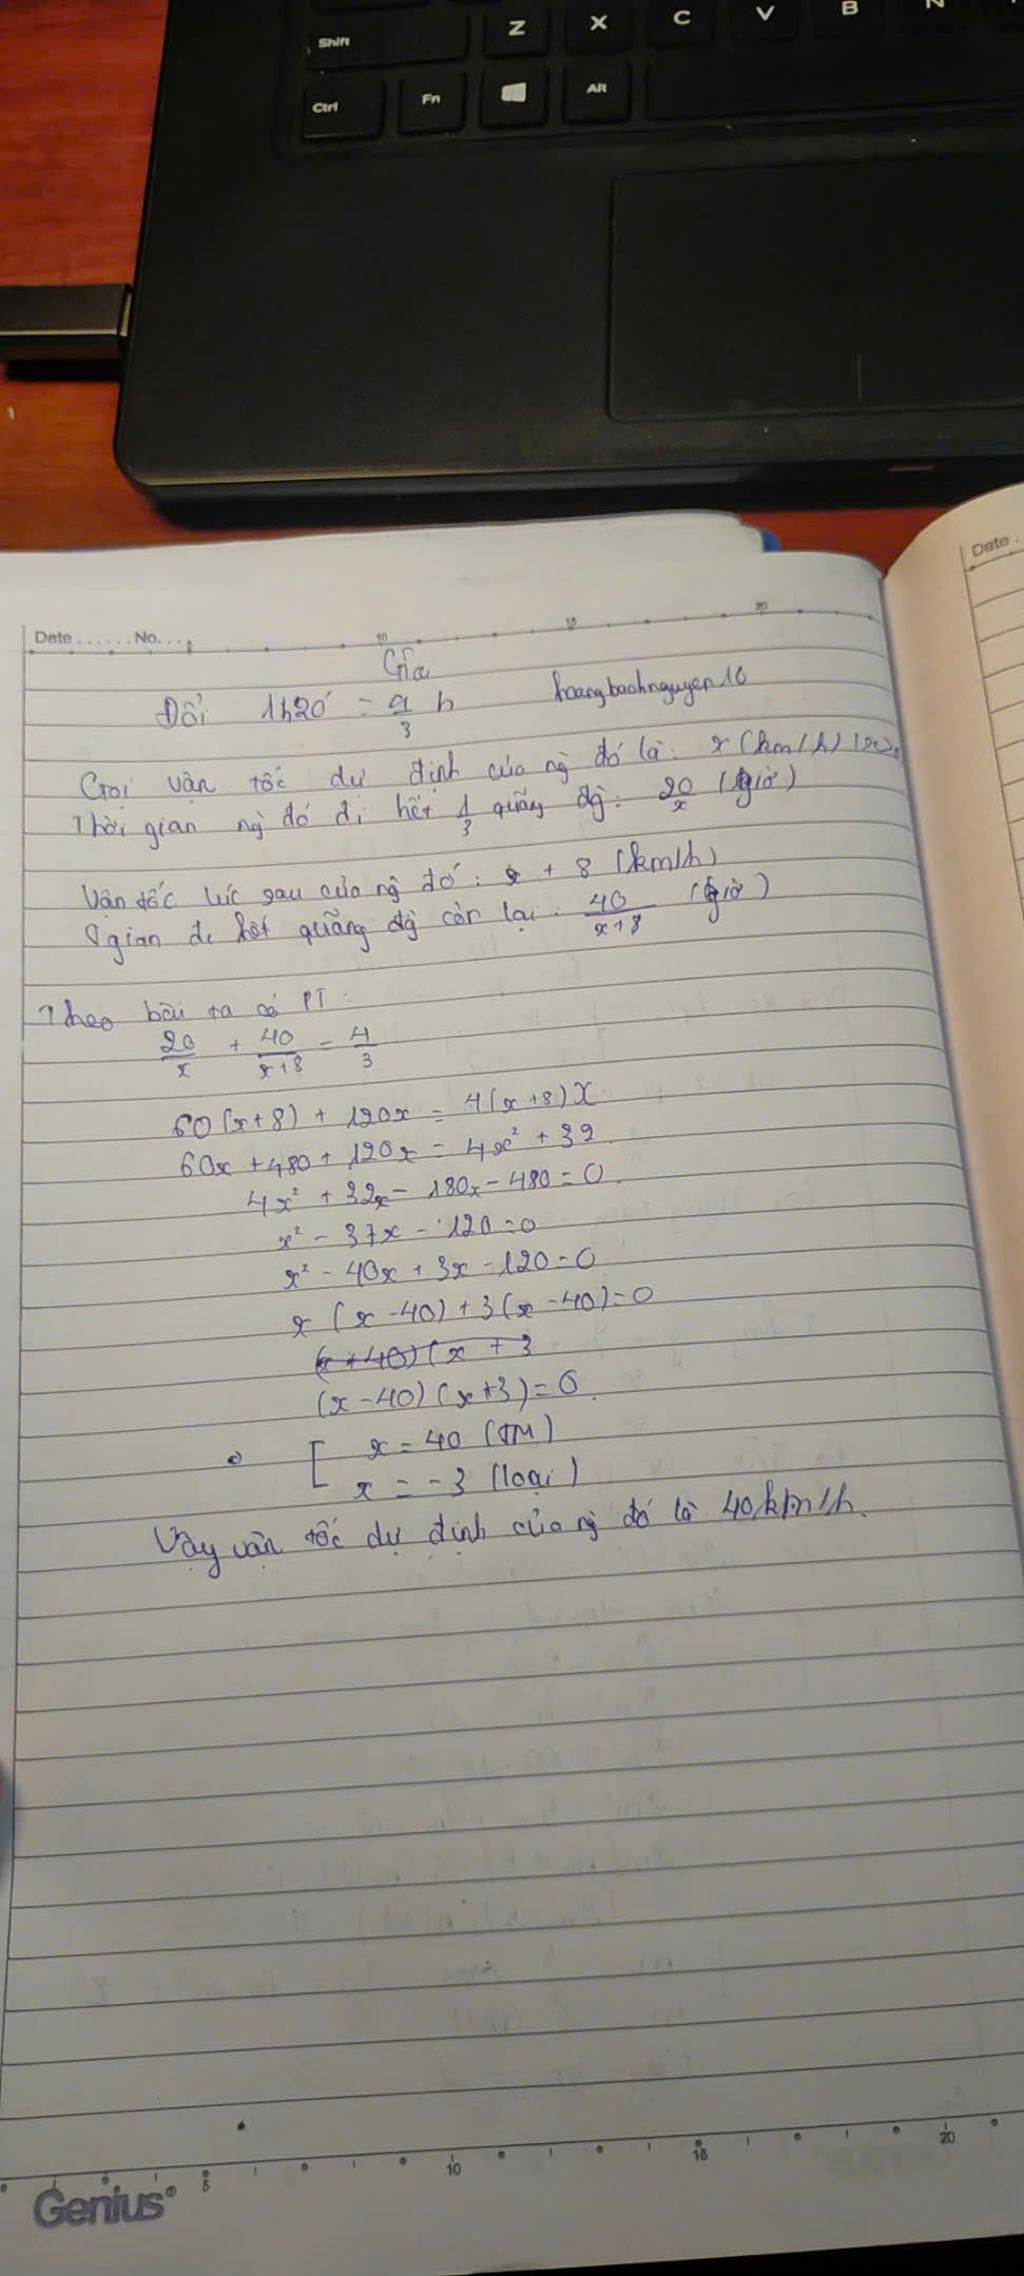 Z X C V B N
Shift
Ctrl Fn Alt
Date
Date ...... No. ...
5 10 15 20
Giải
Đổi 1h20' = 4/3 h hoangbachnguyen10
Gọi vận tốc dự định của ng` đó là: x (km/h)
Thời gian ng` đó đi hết 1/3 quãng đg`: 20/x (giờ)
Vận tốc lúc sau của ng` đó: x + 8 (km/h)
gian đi hết quãng đg` còn lại: 40/x+8 (giờ)
Theo bài ra có PT:
20/x + 40/x+8 = 4/3
60(x+8) + 120x = 4(x+8)x
60x + 480 + 120x = 4x² + 32
4x² + 32x - 180x - 480 = 0
x² - 37x - 120 = 0
x² - 40x + 3x - 120 = 0
x (x - 40) + 3(x - 40) = 0
(x + 40)(x + 3
(x - 40)(x + 3) = 0
[ x = 40 (TM)
x = -3 (loại)
Vậy vận tốc dự định của ng` đó là 40km/h.
5 10 15 20
Genius